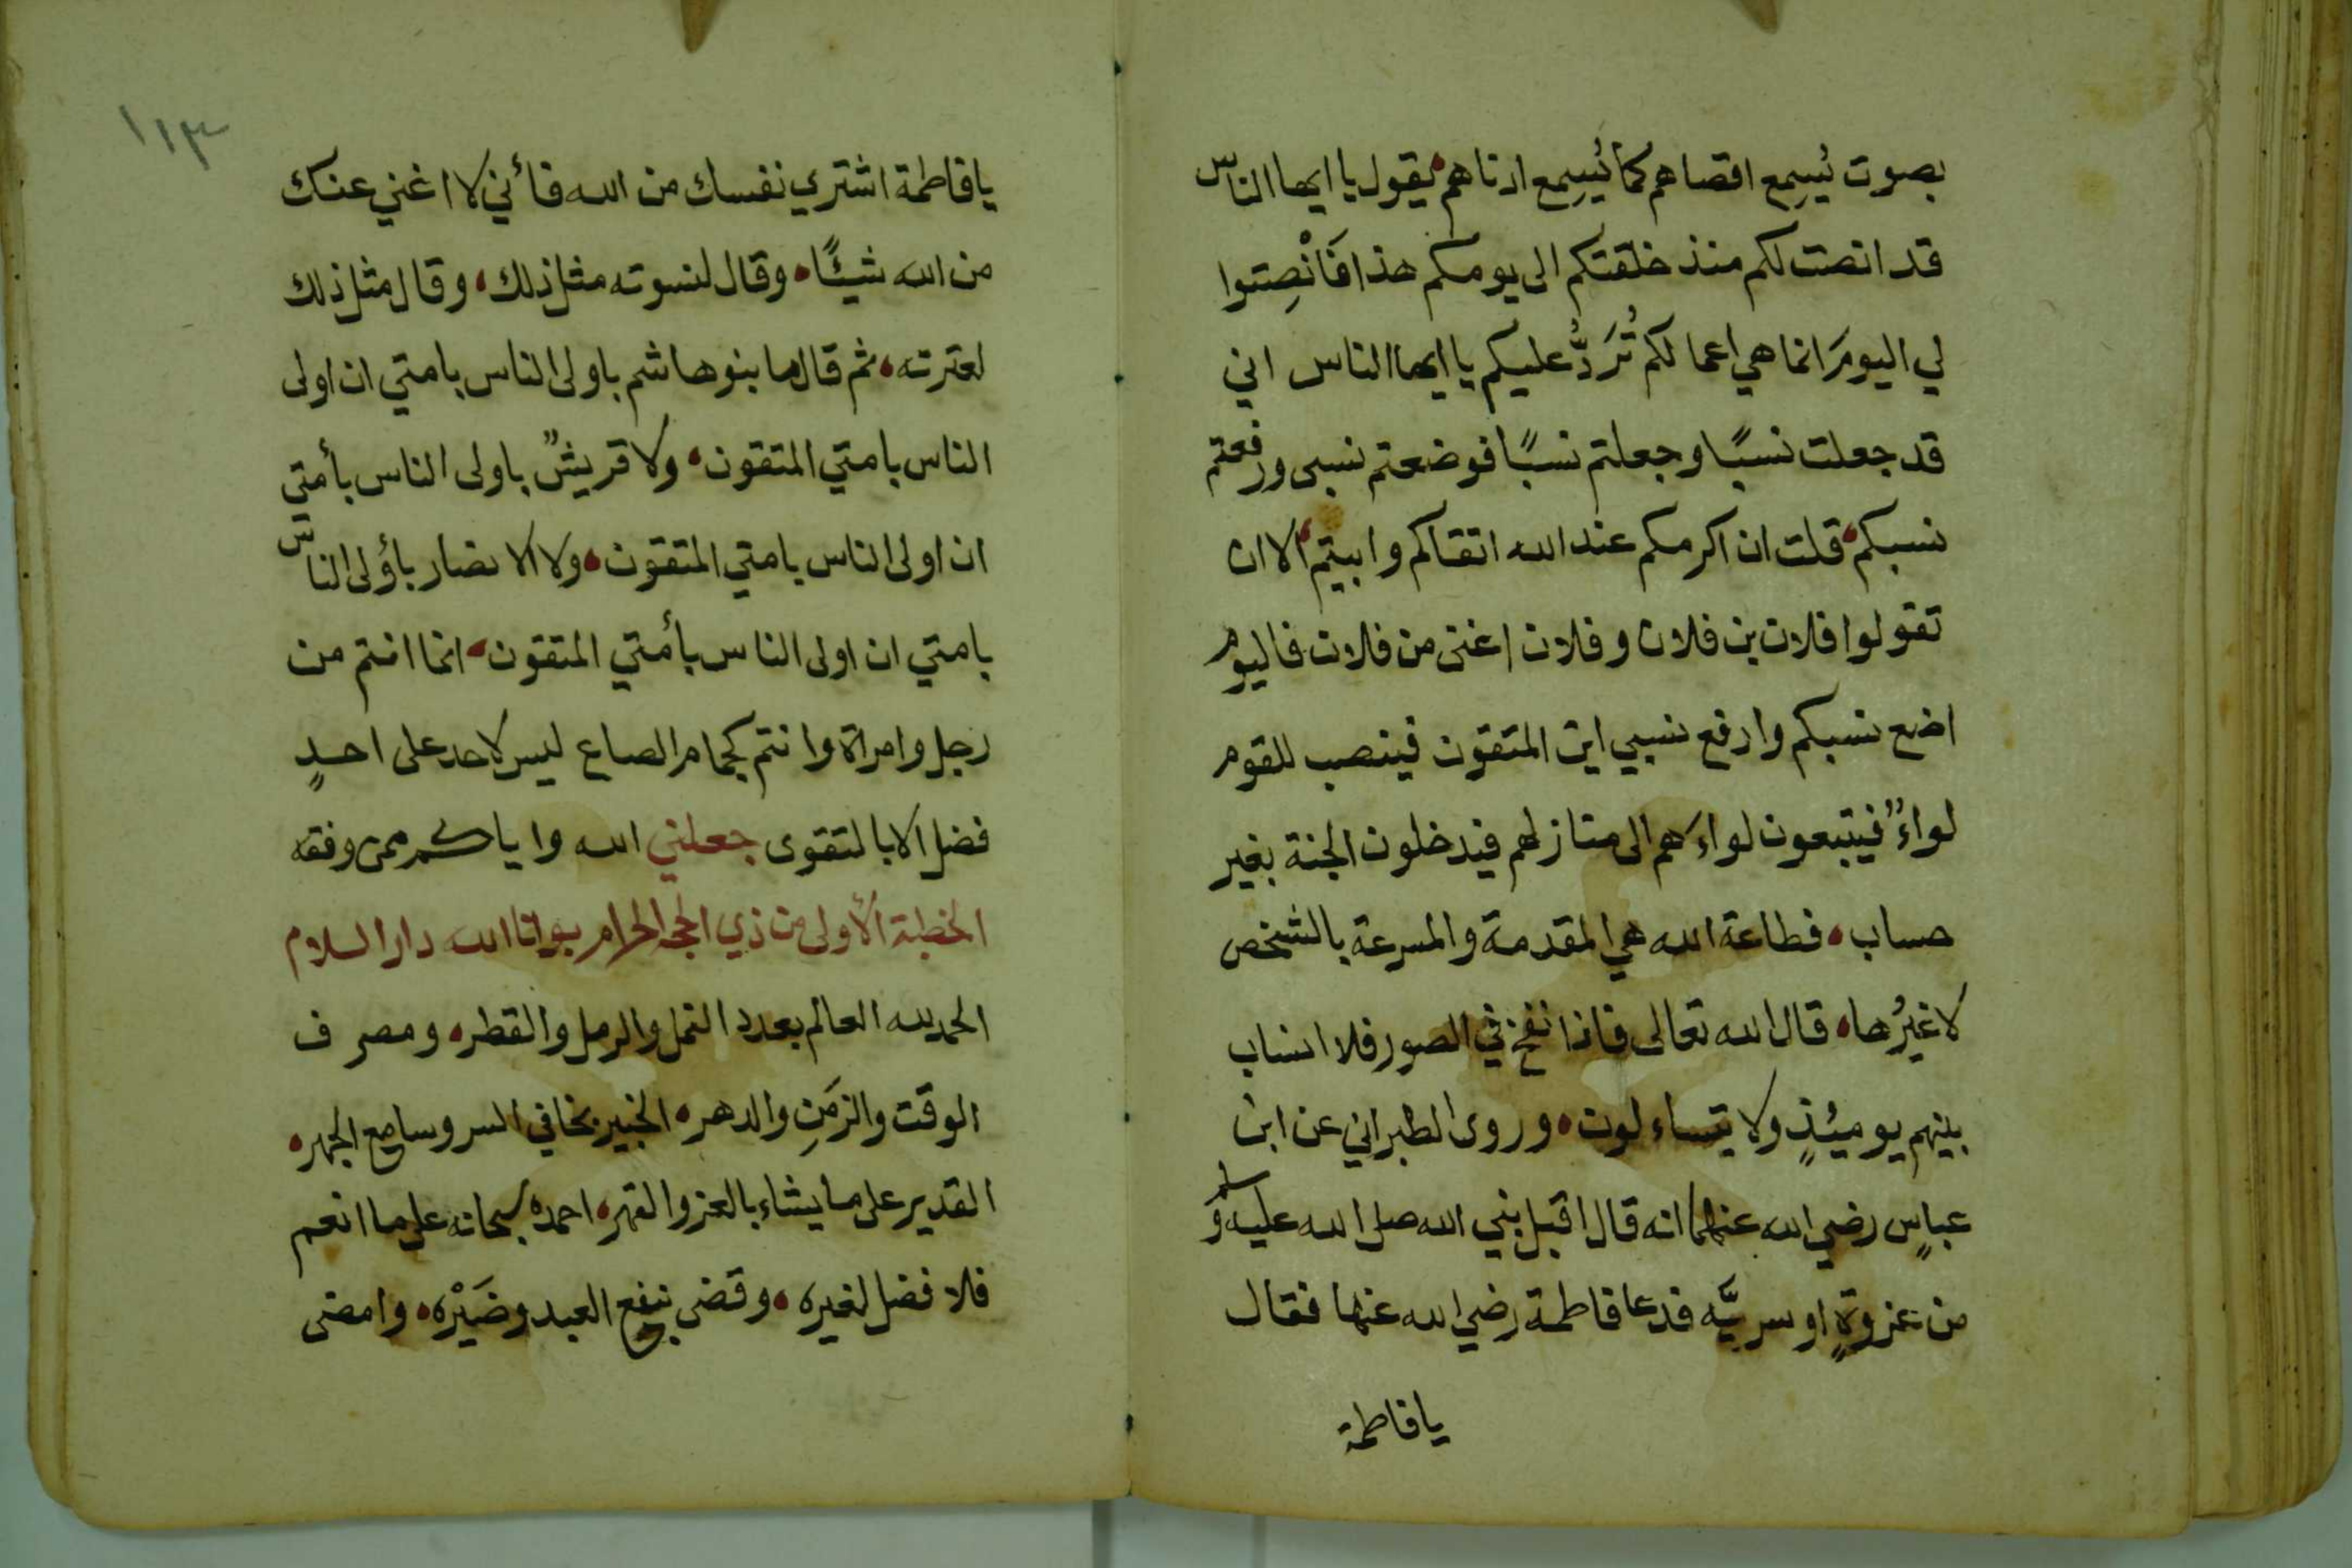 بصوت يُسمِع اقصاهم كما يُسمِع ادناهم يقول يا ايها الناس
قد انصت لكم منذ خلقتكم الى يومكم هذا فَانْصِتوا
لي اليومَ انما هي اعمالكم تُرَدُّ عليكم يا ايها الناس اني
قد جعلت نسبًا وجعلتم نسبًا فوضعتم نسبى ورفعتم
نسبكم قلت ان اكرمكم عند الله اتقاكم وابيتم الا ان
تقولوا فلان بن فلان وفلان اغنى من فلان فاليوم
اضع نسبكم وارفع نسبي اين المتقون فينصب للقوم
لواءٌ فيتبعون لواءَهم الى منازلهم فيدخلون الجنة بغير
حساب، فطاعة الله هي المقدمة والمسرعة بالشخص
لا غيرُها، قال الله تعالى فاذا نفخ في الصور فلا انساب
بينهم يومئذٍ ولا يتساءلون، وروى الطبراني عن ابن
عباسٍ رضي الله عنهما انه قال اقبل نبي الله صلى الله عليه وسلم
من غزوةٍ او سريَّه فدعا فاطمة رضي الله عنها فقال
يا فاطمة
١١٣
يا فاطمة اشتري نفسك من الله فأني لا اغني عنك
من الله شيئًا، وقال لنسوته مثل ذلك، وقال مثل ذلك
لعترته، ثم قال ما بنوهاشم باولى الناس بامتي ان اولى
الناس بامتي المتقون، ولا قريشٌ باولى الناس بأمتي
ان اولى الناس بامتي المتقون، ولا الانصار بأولى الناس
بامتي ان اولى الناس بأمتي المتقون، انما انتم من
رجل وامراة وانتم كجمام الصاع ليس لاحد على احدٍ
فضل الا بالتقوى جعلني الله واياكم ممن وفقه
الخطبة الأولى من ذي الحجة الحرام بوانا الله دار السلام
الحمد لله العالم بعدد النمل والرمل والقطر، ومصرف
الوقت والزمَنِ والدهر، الخبير بخافي السر وسامع الجهر،
القدير على ما يشاء بالعز والقهر، احمده سبحانه على ما انعم
فلا فضل لغيره، وقضى بنفع العبد وضَيْره، وامضى